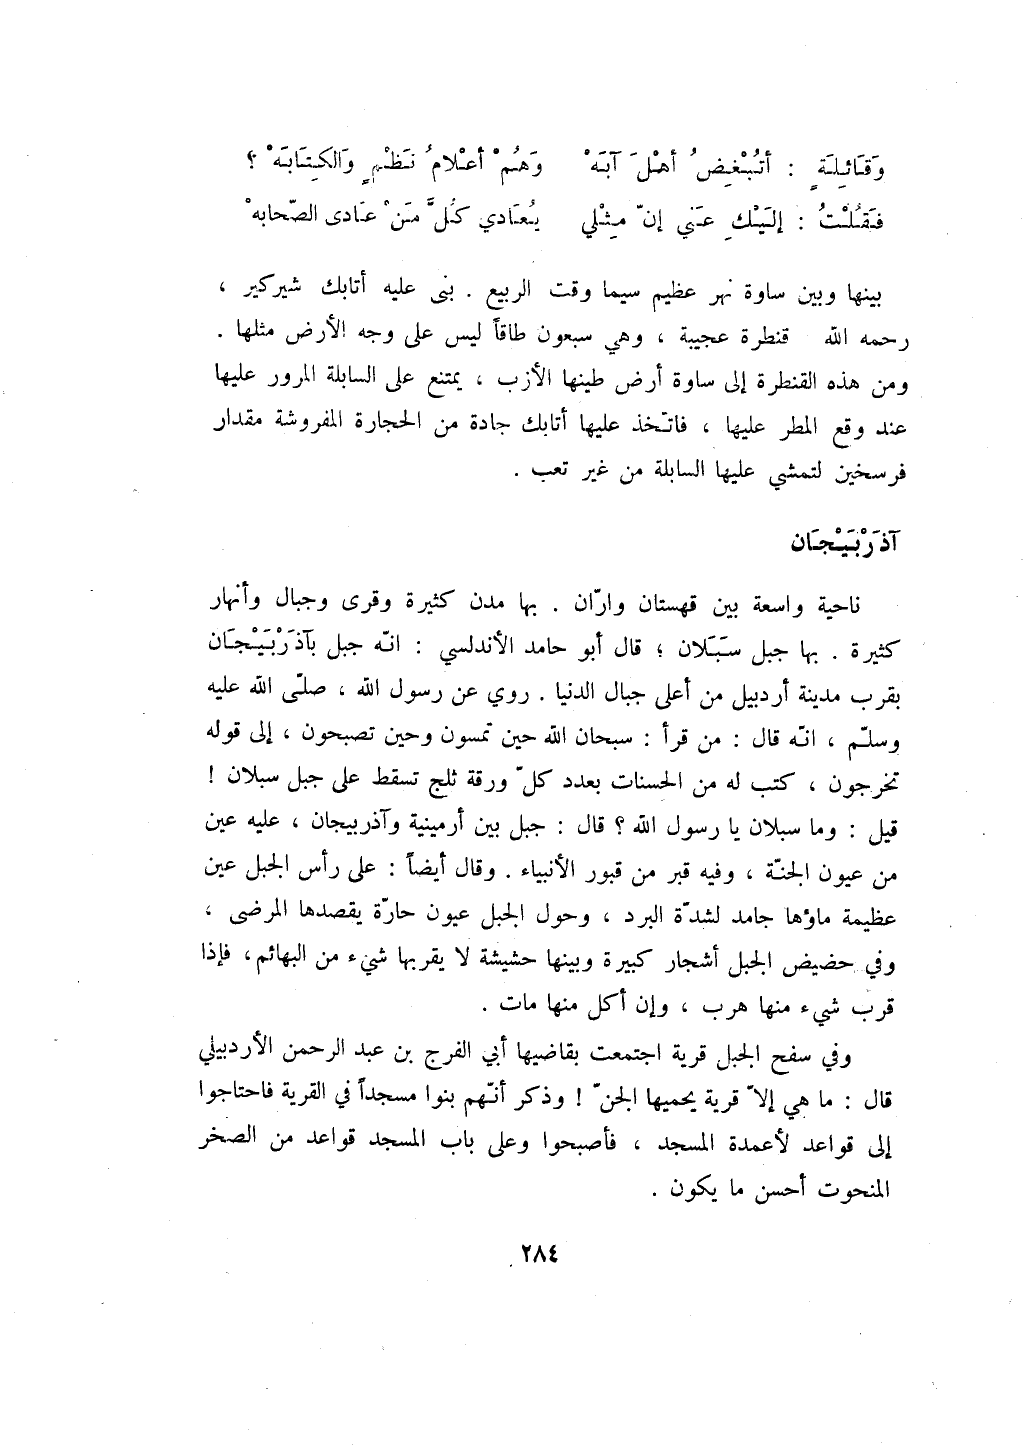 وَقَائِلَةٍ : أَتُبْغِضُ أَهْلَ آبَهْ وَهُمْ أَعْلامُ نَظْمٍ وَالكِتَابَهْ ؟
فَقُلْتُ : إلَيْكِ عَنّي إنّ مِثْلي يُعَادي كُلَّ مَنْ عَادى الصّحابهْ
بينها وبين ساوة نهر عظيم سيما وقت الربيع . بنى عليه أتابك شيركير ،
رحمه الله قنطرة عجيبة ، وهي سبعون طاقاً ليس على وجه الأرض مثلها .
ومن هذه القنطرة إلى ساوة أرض طينها الأزب ، يمتنع على السابلة المرور عليها
عند وقع المطر عليها ، فاتّخذ عليها أتابك جادة من الحجارة المفروشة مقدار
فرسخين لتمشي عليها السابلة من غير تعب .
آذَرْبَيْجَان
ناحية واسعة بين قهستان وارّان . بها مدن كثيرة وقرى وجبال وأنهار
كثيرة . بها جبل سَبَلان ؛ قال أبو حامد الأندلسي : انّه جبل بآذَرْبَيْجَان
بقرب مدينة أردبيل من أعلى جبال الدنيا . روي عن رسول الله ، صلّى الله عليه
وسلّم ، انّه قال : من قرأ : سبحان الله حين تمسون وحين تصبحون ، إلى قوله
تخرجون ، كتب له من الحسنات بعدد كلّ ورقة ثلج تسقط على جبل سبلان !
قيل : وما سبلان يا رسول الله ؟ قال : جبل بين أرمينية وآذربيجان ، عليه عين
من عيون الجنّة ، وفيه قبر من قبور الأنبياء . وقال أيضاً : على رأس الجبل عين
عظيمة ماؤها جامد لشدّة البرد ، وحول الجبل عيون حارّة يقصدها المرضى ،
وفي حضيض الجبل أشجار كبيرة وبينها حشيشة لا يقربها شيء من البهائم ، فإذا
قرب شيء منها هرب ، وإن أكل منها مات .
وفي سفح الجبل قرية اجتمعت بقاضيها أبي الفرج بن عبد الرحمن الأردبيلي
قال : ما هي إلاّ قرية يحميها الجنّ ! وذكر أنّهم بنوا مسجداً في القرية فاحتاجوا
إلى قواعد لأعمدة المسجد ، فأصبحوا وعلى باب المسجد قواعد من الصخر
المنحوت أحسن ما يكون .
٢٨٤